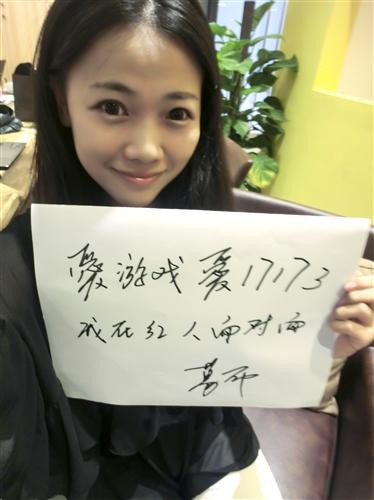 爱游戏 爱17173
我在红人面对面